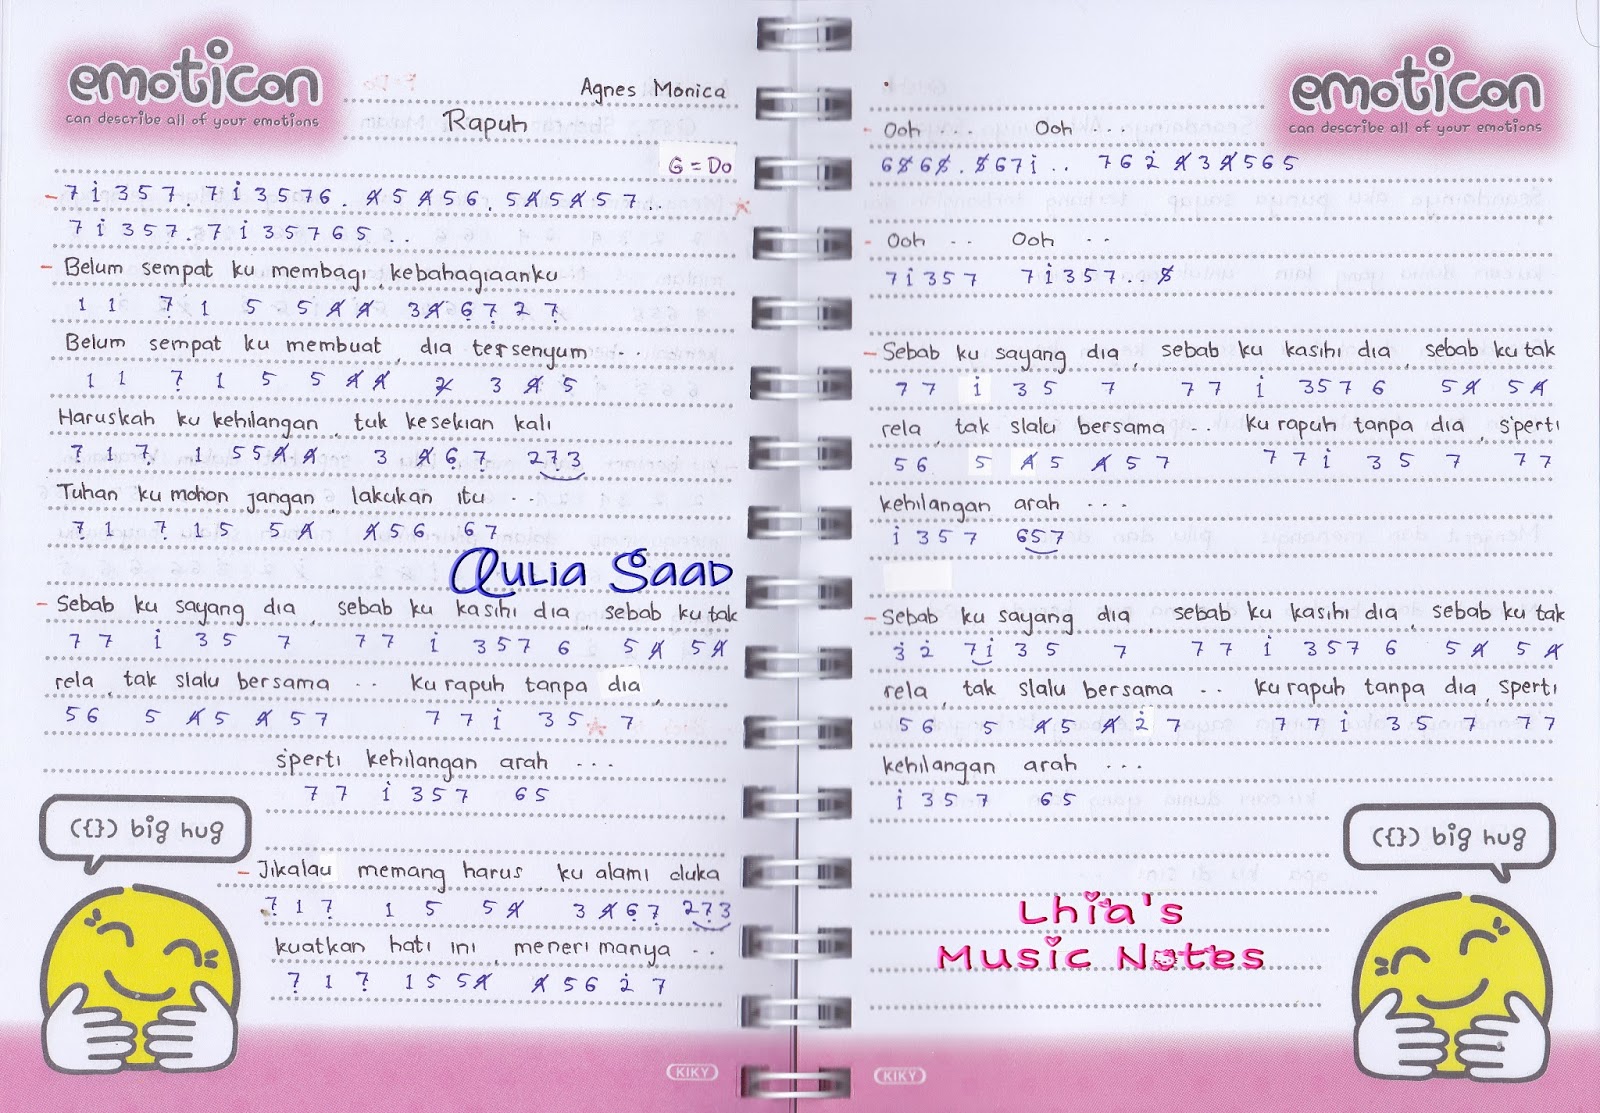 emoticon
can describe all of your emotions
Agnes Monica
Rapuh
G = Do
- 7 1̇ 3 5 7 . 7 1̇ 3 5 7 6 . 4̸ 5 4̸ 5 6 . 5 4̸ 5 4̸ 5 7 . .
7 1̇ 3 5 7 . 7 1̇ 3 5 7 6 5 . .
- Belum sempat ku membagi, kebahagiaanku
1 1 7̣ 1 5 5 4̸ 4̸ 3 4̸ 6̣ 7̣ 2 7̣
Belum sempat ku membuat, dia tersenyum ...
1 1 7̣ 1 5 5 4̸ 4̸ 2̸ 3 4̸ 5
Haruskah ku kehilangan, tuk kesekian kali
7̣ 1 7̣ 1 5 5 4̸ 4̸ 3 4̸ 6̣ 7̣ 2 7̣ 3
Tuhan ku mohon jangan, lakukan itu ...
7̣ 1 7̣ 1 5 5 4̸ 4̸ 5 6 6 7
Aulia Saad
- Sebab ku sayang dia, sebab ku kasihi dia, sebab ku tak
7 7 1̇ 3 5 7 7 7 1̇ 3 5 7 6 5 4̸ 5 4̸
rela, tak slalu bersama .. ku rapuh tanpa dia,
5 6 5 4̸ 5 4̸ 5 7 7 7 1̇ 3 5 7
s'perti kehilangan arah ...
7 7 1̇ 3 5 7 6 5
({}) big hug
- Jikalau memang harus, ku alami duka
7̣ 1 7̣ 1 5 5 4̸ 3 4̸ 6̣ 7̣ 2 7̣ 3
kuatkan hati ini, menerimanya ..
7̣ 1 7̣ 1 5 5 4̸ 4̸ 5 6 2̇ 7
KIKY
emoticon
can describe all of your emotions
- Ooh ... Ooh ...
6 5̸ 6 5̸ . 5̸ 6 7 1̇ . . 7 6 2̇ 4̸ 3 4̸ 5 6 5
- Ooh .. Ooh ..
7 1̇ 3 5 7 7 1̇ 3 5 7 . . 5̸
- Sebab ku sayang dia, sebab ku kasihi dia, sebab ku tak
7 7 1̇ 3 5 7 7 7 1̇ 3 5 7 6 5 4̸ 5 4̸
rela, tak slalu bersama .. ku rapuh tanpa dia, s'perti
5 6 5 4̸ 5 4̸ 5 7 7 7 1̇ 3 5 7 7 7
kehilangan arah ...
1̇ 3 5 7 6 5 7
- Sebab ku sayang dia, sebab ku kasihi dia, sebab ku tak
3̇ 2̇ 7 1̇ 3 5 7 7 7 1̇ 3 5 7 6 5 4̸ 5 4̸
rela, tak slalu bersama .. ku rapuh tanpa dia, sperti
5 6 5 4̸ 5 4̸ 2̇ 7 7 7 1̇ 3 5 7 7 7
kehilangan arah ...
1̇ 3 5 7 6 5
({}) big hug
Lhia's
Music Notes
KIKY